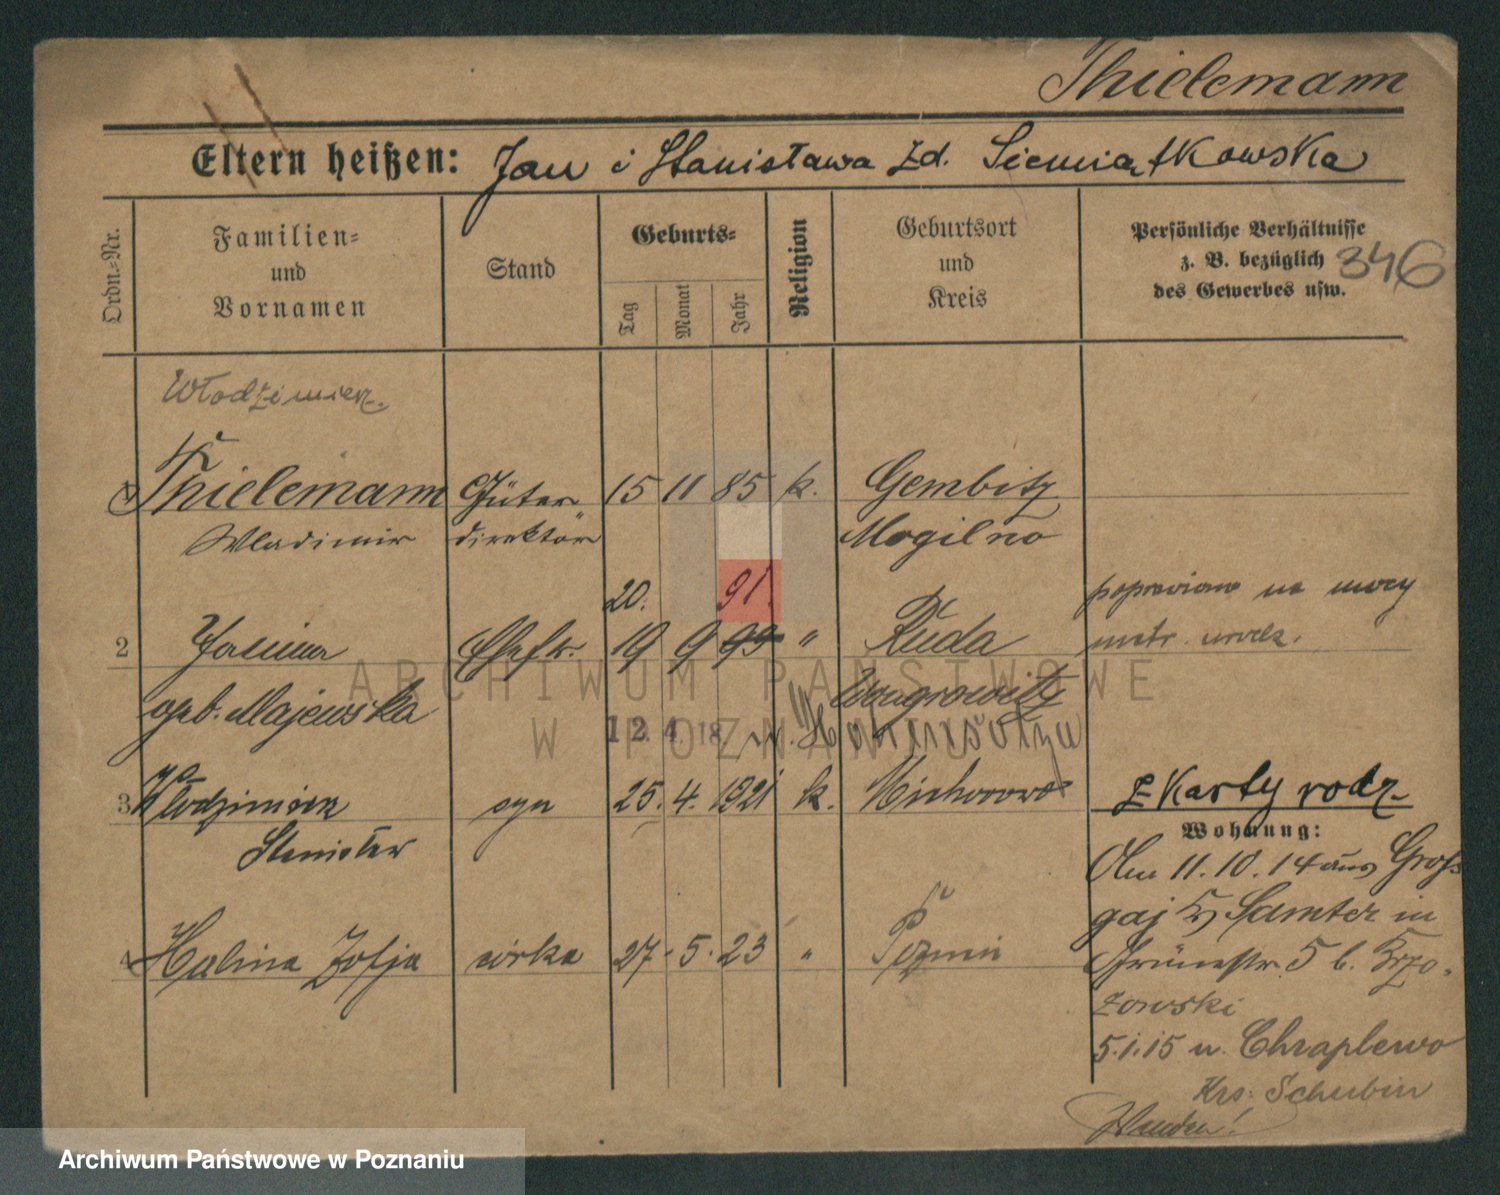 Thielemann
Eltern heißen: Jan i Stanisława zd. Siemiątkowska
Ordn.=Nr.
Familien=
und
Vornamen
Stand
Geburts=
Tag
Monat
Jahr
Religion
Geburtsort
und
Kreis
Persönliche Verhältnisse
z. B. bezüglich
des Gewerbes usw.
346
Włodzimierz
1 Thielemann Güter 15 11 85 k. Gembitz
Wladimir direktor Mogilno
20. 91.
2 Janina Ehefr. 19 9 93 " Ruda
poprawiono na mocy
metr. urodz.
geb. Majewska Wongrowitz
12 4 18
3 Włodzimierz syn 25. 4. 1921 k. Michorowo
Stanisław
Z Karty rodz.
Wohnung:
4 Halina Zofja córka 27. 5. 23 " Poznań
Am 11.10.14 aus Groß
gaj Samter in
Grünestr. 5 b. Brzo-
zowski
5.1.15 n. Chraplewo
Krs. Schubin
Wenden!
ARCHIWUM PAŃSTWOWE
W POZNANIU
Archiwum Państwowe w Poznaniu